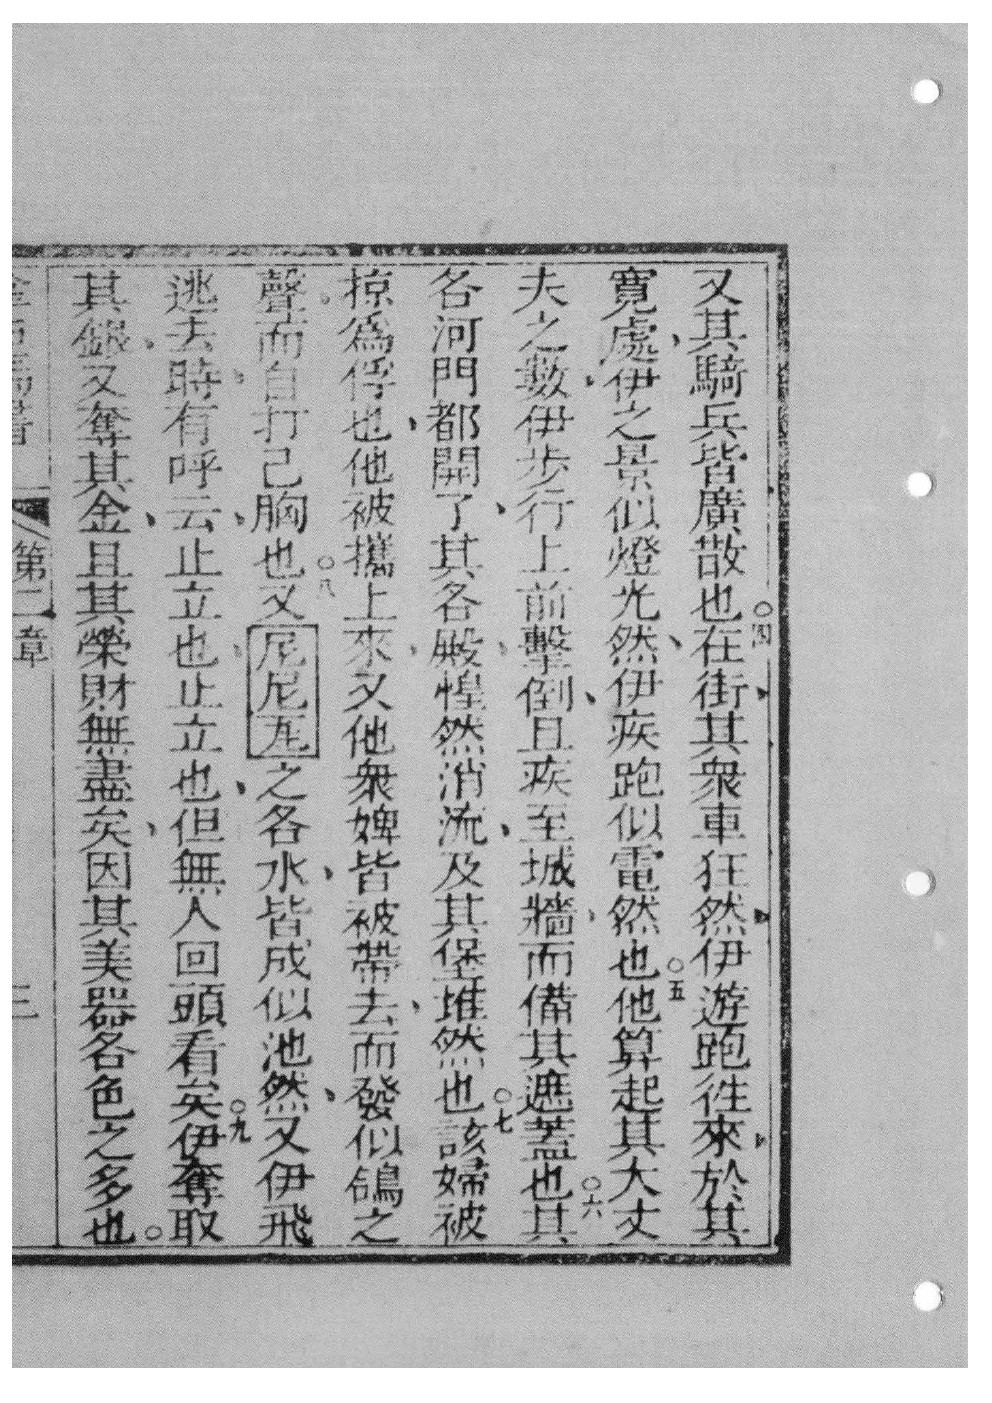 又其騎兵皆廣散也○四在街其衆車狂然伊遊跑徃來於其
寬處伊之景似燈光然伊疾跑似電然也○五他算起其大丈
夫之數伊步行上前擊倒且疾至城牆而備其遮蓋也○六其
各河門都開了其各殿惶然消流及其堡堆然也○七該婦被
掠爲俘也他被攜上來又他衆婢皆被帶去而發似鴿之
聲而自打己胸也○八又尼尼瓦之各水皆成似池然又伊飛
逃去時有呼云止立也止立也但無人回頭看矣○九伊奪取
其銀又奪其金且其榮財無盡矣因其美器各色之多也○
書 第二章 三